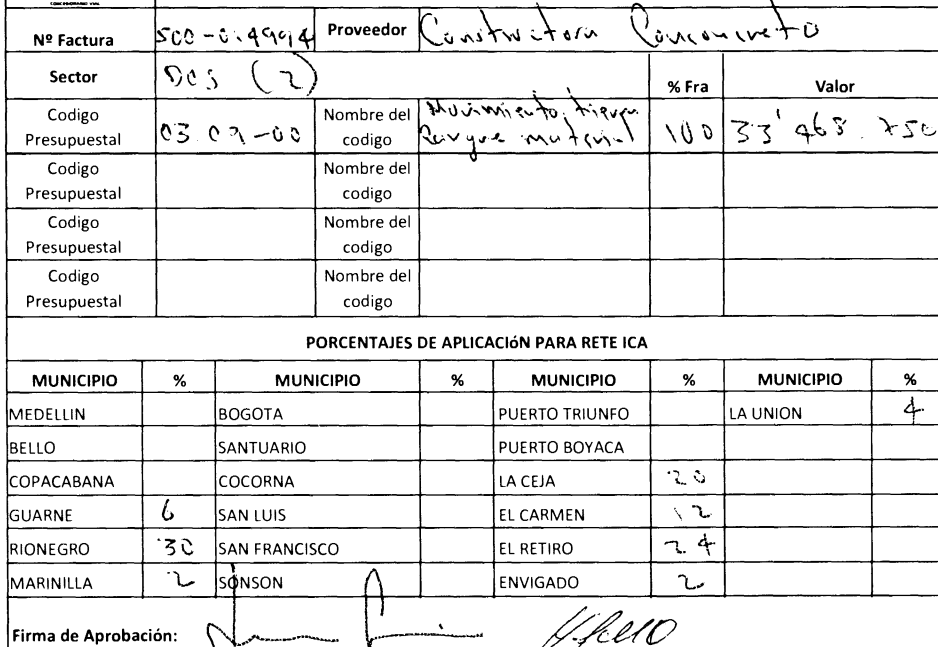 Nº Factura 500-014994 Proveedor Constructora Conconcreto
Sector DOS (2) % Fra Valor
Codigo Presupuestal 03.09-00 Nombre del codigo Movimiento tierra Cargue material 100 33'468.750
Codigo Presupuestal Nombre del codigo
Codigo Presupuestal Nombre del codigo
Codigo Presupuestal Nombre del codigo
PORCENTAJES DE APLICACIÓN PARA RETE ICA
MUNICIPIO % MUNICIPIO % MUNICIPIO % MUNICIPIO %
MEDELLIN BOGOTA PUERTO TRIUNFO LA UNION 4
BELLO SANTUARIO PUERTO BOYACA
COPACABANA COCORNA LA CEJA 20
GUARNE 6 SAN LUIS EL CARMEN 12
RIONEGRO 30 SAN FRANCISCO EL RETIRO 24
MARINILLA 2 SONSON ENVIGADO 2
Firma de Aprobación: